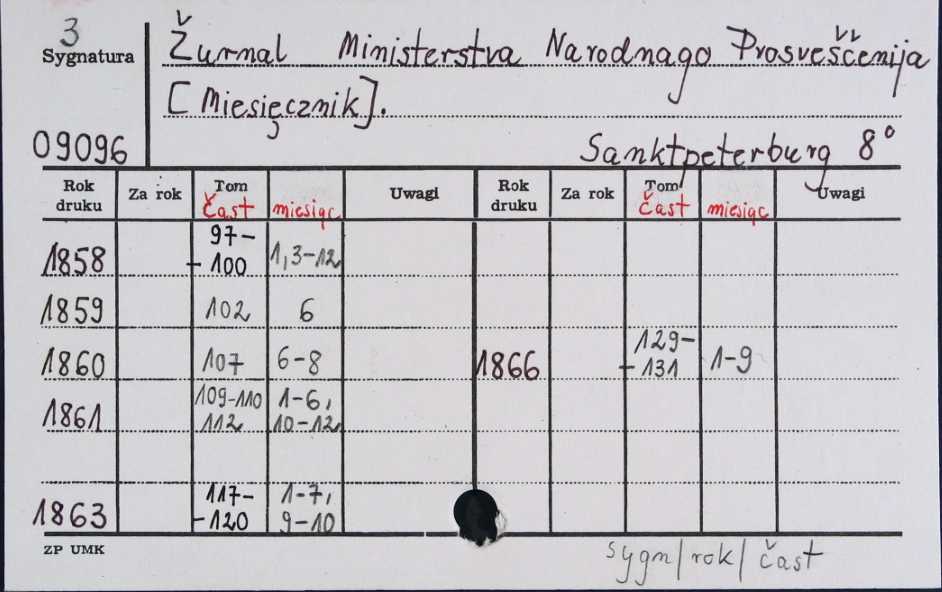 3
Sygnatura
Žurnal Ministerstva Narodnago Prosveščenija
[Miesięcznik].
09096
Sanktpeterburg 8°
Rok druku Za rok Tom Část miesiąc Uwagi Rok druku Za rok Tom Část miesiąc Uwagi
1858 97-100 1,3-12
1859 102 6
1860 107 6-8 1866 129-131 1-9
1861 109-110 112 1-6, 10-12
1863 117-120 1-7, 9-10
ZP UMK
sygn/rok/část